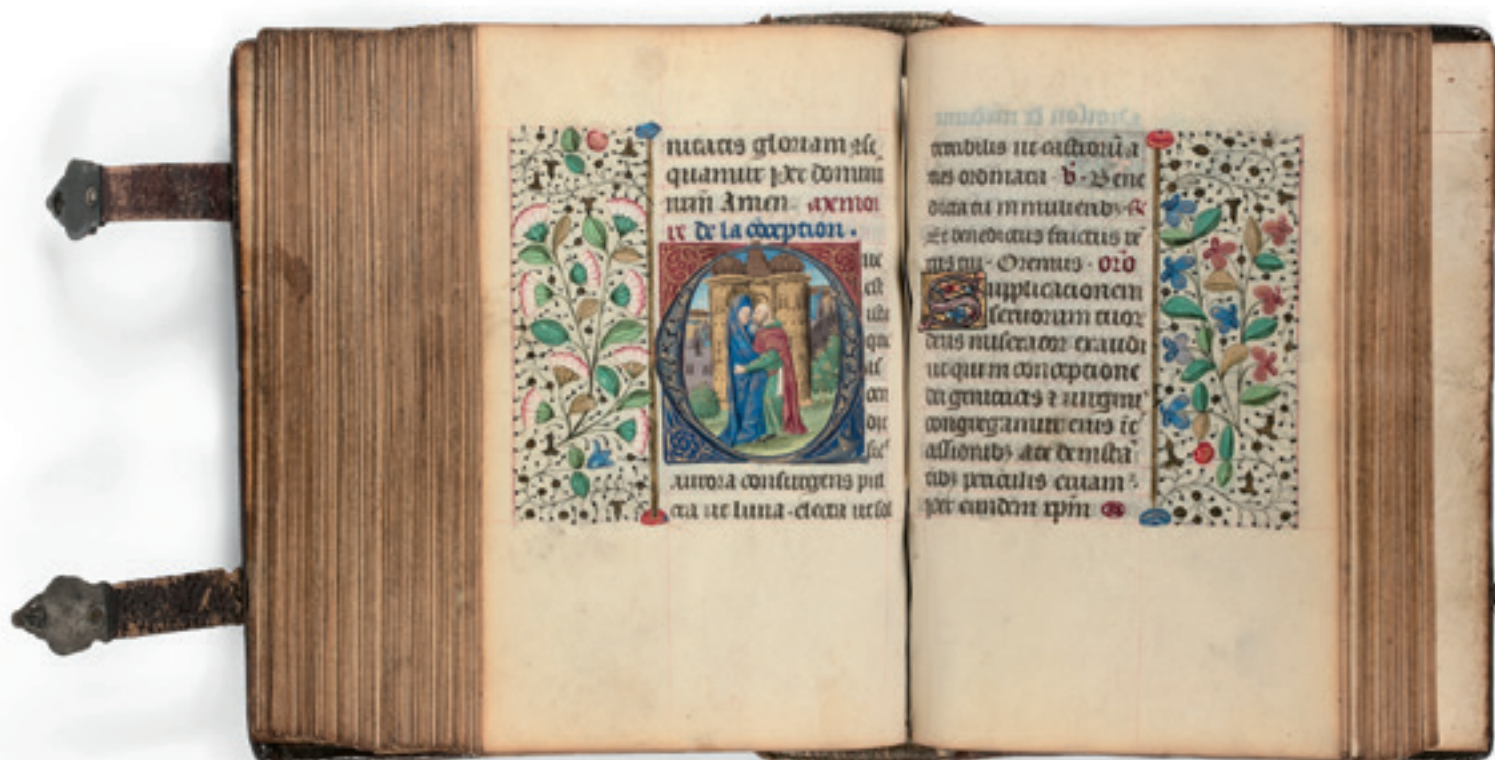 nitatis gloriam asse
quamur per domini
num Amen. a memoi
re de la cõception.
ue
est
ista
que
as
cen
dit
sic
Aurora consurgens pul
cra ut luna. electa ut sol
terribilis ut castrorũ a
cies ordinata. v. Bene
dicta tu in mulierib;
Et benedictus fructus vẽ
tris tui. Oremus. orõ
Supplicationem
servorum tuor
deus miserator exaudi
ut qui in conceptione
dei genitricis virginis
congregamur eius
instã
tib; periculis
per eundem xpm